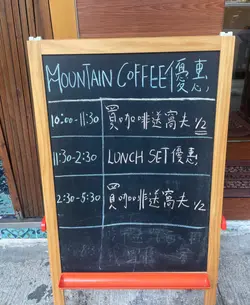 MOUNTAIN COFFEE優惠
10:00-11:30 買咖啡送窩夫1/2
11:30-2:30 LUNCH SET優惠
2:30-5:30 買咖啡送窩夫1/2